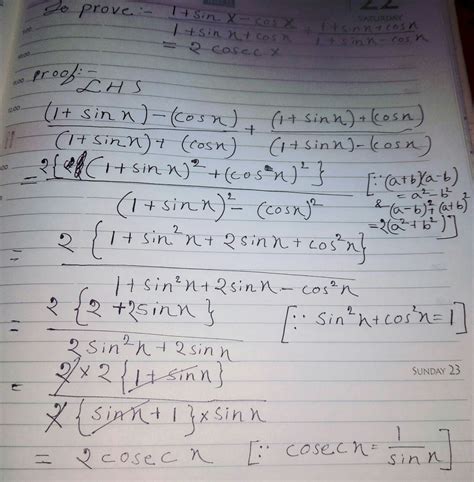 To prove:- (1+sin x - cos x)/(1+sin x + cos x) + (1+sin x + cos x)/(1+sin x - cos x)
= 2 cosec x
22
SATURDAY
Proof:-
LHS
((1+sin x) - (cos x))/((1+sin x) + (cos x)) + ((1+sin x) + (cos x))/((1+sin x) - (cos x))
= 2{(1+sin x)² + (cos x)²}/((1+sin x)² - (cos x)²) [∵ (a+b)(a-b) = a² - b² & (a-b)² + (a+b)² = 2(a² + b²)]
= 2{1+sin²x + 2sin x + cos²x}/(1+sin²x + 2sin x - cos²x)
= 2{2 + 2sin x}/(2sin²x + 2sin x) [∵ sin²x + cos²x = 1]
= 2 × 2{1+sin x}/(2{sin x + 1} × sin x)
SUNDAY 23
= 2 cosec x [∵ cosec x = 1/sin x]